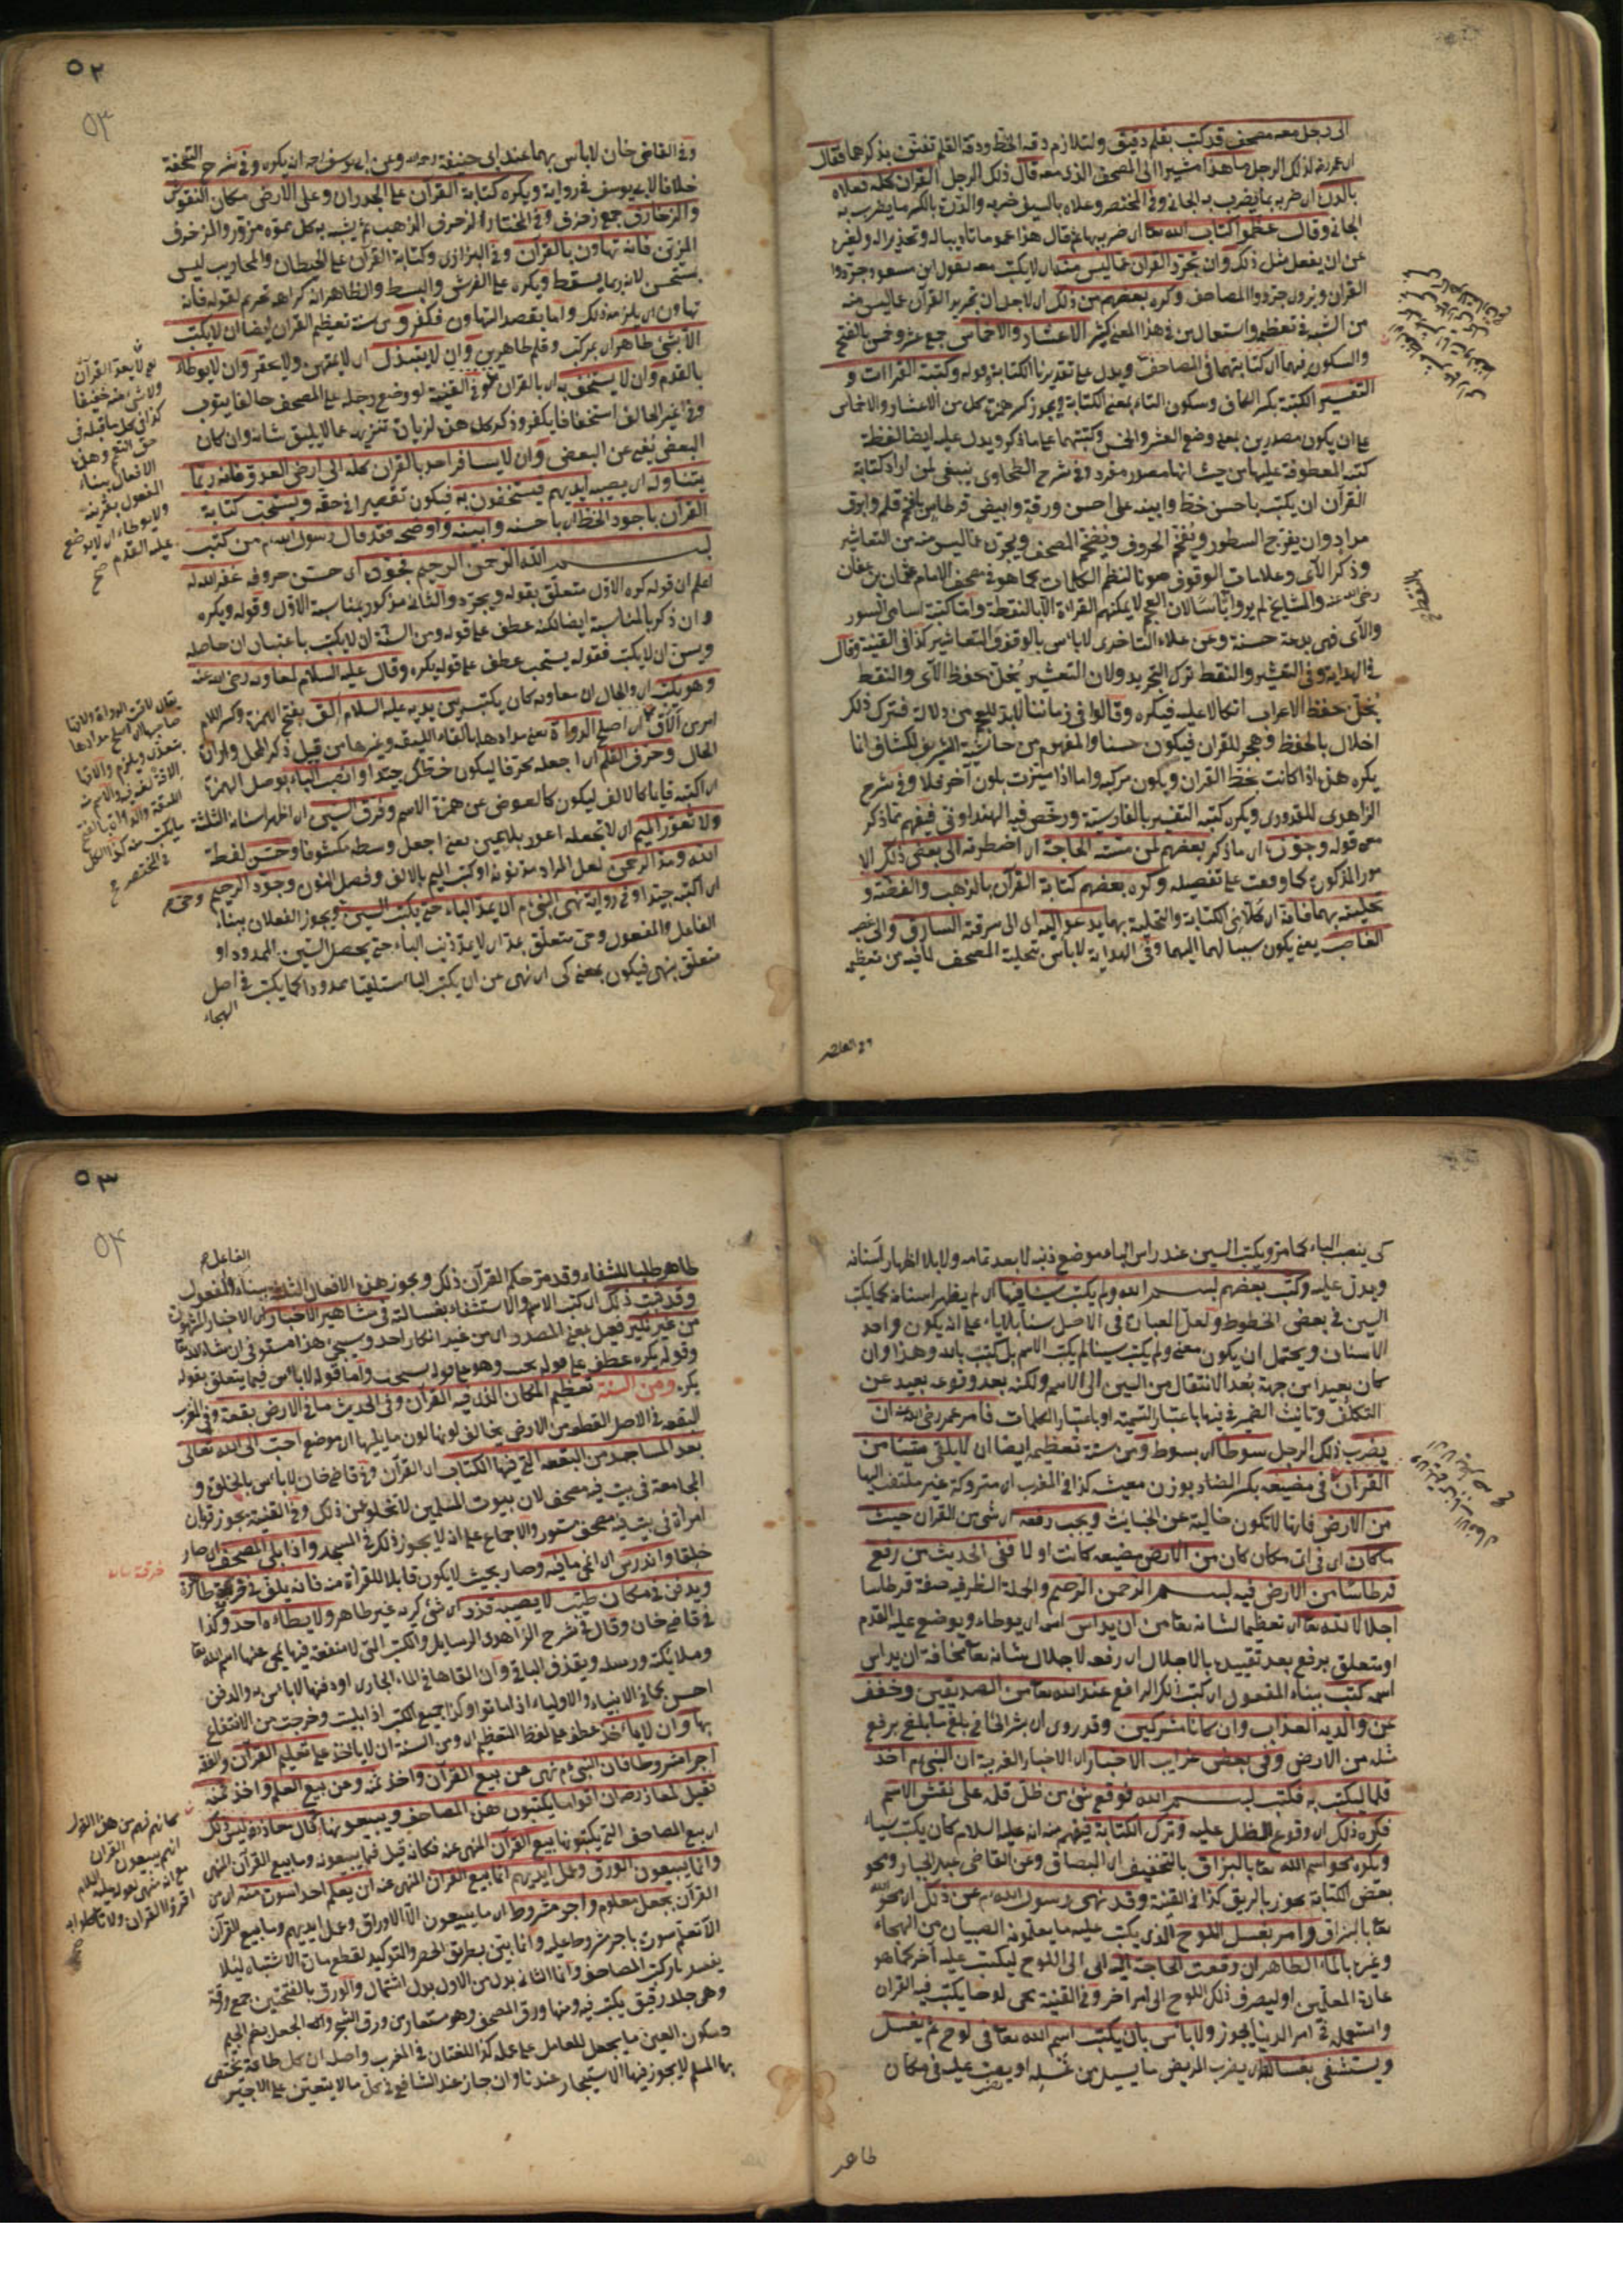 الى رجل معه مصحف قد كتب بقلم دقيق ولتلازم دقة الخط ودقة القلم تفنن بذكرهما فقال
اى عمر رضه لذلك الرجل ما هذا مشيرا الى المصحف الذى معه قال ذلك الرجل القرآن كله فعلاه
بالدرة اى ضربه بما يضرب به الجانى وفى المختصر وعلاه بالسيف ضربه والدرة بالكسر ما يضرب به
الجانى وقال عظموا كتاب الله تعا اى ضربه بها ثم قال هذا عموما تاديبا له وتحذيرا له ولغيره
عن ان يفعل مثل ذلك وان يجرد القرآن عما ليس منه اى لا يكتب معه لقول ابن مسعود جردوا
القرآن ويروى جردوا المصاحف وكره بعضهم من ذلك اى لاجل ان تجريد القرآن عما ليس منه
من السنة فى تعظيمه واستعمال من فى هذا المعنى كثير الاعشار والاخماس جمع عشر وخمس بالفتح
والسكون فيهما اى كتابتهما فى المصاحف ويدل على تقديرنا الكتابة قوله وكتبة القراات و
التفسير الكتبة بكسر الكاف وسكون التاء بمعنى الكتابة ويجوز كسر همزة كل من الاعشار والاخماس
على ان يكون مصدرين بمعنى وضع العشر والخمس وكتبتهما على ما ذكر ويدل عليه ايضا لفظة
كتبة المعطوفة عليها من حيث انها مصدر مفرد وفى شرح الطحاوى ينبغى لمن اراد كتابة
القرآن ان يكتب باحسن خط وابينه على احسن ورقة وابيض قرطاس بافخم قلم وابرق
مداد وان يفرج السطور ويفخم الحروف ويضخم المصحف ويجرده عما ليس منه من التعاشير
وذكر الآى وعلامات الوقوف صونا لنظم الكلمات كما هو فى مصحف الامام عثمان بن عفان
رضى الله عنه والمشايخ لم يروا بأسا لان العجم لا يمكنهم القراءة الا بالنقطة واما كتبة اسامى السور
والآى فهى بدعة حسنة وعن علاء التاجرى لا بأس بالوقوف والتعاشير كذا فى القنية وقال
فى الهداية وفى التعشير والنقط ترك التجريد ولان التعشير يخل بحفظ الآى والنقط
يخل بحفظ الاعراب اتكالا عليه فيكره وقالوا فى زماننا لا بد للعجم من دلالة فترك ذلك
اخلال بالحفظ وهجر للقرآن فيكون حسنا والمفهوم من حاشية الشريف للكشاف انما
يكره هذه اذا كانت بخط القرآن ويكون مركبه واما اذا ميزت بلون آخر فلا وفى شرح
الزاهدى للقدورى ويكره كتبة التفسير بالفارسية ورخص فيه الهندوانى فيفهم مما ذكر
معه قوله وجوزه اى ما ذكر بعضهم لمن مسته الحاجة اى اضطرته الى بعض ذلك الا
مور المذكورة كما وقعت على تفصيله وكره بعضهم كتابة القرآن بالذهب والفضة و
تحليته بهما مخافة ان كلا من الكتابة والتحلية بهما يدعو اليه اى الى سرقة السارق والى غصب
الغاصب يعنى يكون سببا لهما اليهما وفى الهداية لا بأس بتحلية المصحف لما فيه من تعظيمه
٥٢
٥٣
وفى القاضى خان لا بأس بهما عند ابى حنيفة رحمه الله وعن ابى يوسف رحه انه يكره وفى شرح التحفة
خلافا لابى يوسف فى رواية ويكره كتابة القرآن على الجدران وعلى الارض مكان النقوش
والزخارف جمع زخرف وفى المختار الزخرف الذهب ثم يشبه به كل مموه مزور والمزخرف
المزين فانه تهاون بالقرآن وفى البزازى وكتابة القرآن على الحيطان والمحاريب ليس
بمستحسن لانه ربما يسقط ويكره على الفرش والبسط والظاهر انه كراهة تحريم لقوله فانه
تهاون اى يلزمه ذلك واما بقصد التهاون فكفر ومن سنة تعظيم القرآن ايضا ان لا يكتب
الا بشئ طاهر اى بمركب وقلم طاهرين وان لا يبتذل اى لا يمتهن ولا يحقر وان لا يوطاء
بالقدم وان لا يستخف به اى بالقرآن وفى القنية لو وضع رجله على المصحف حالفا يتوب
وفى غير الحالف استخفافا يكفر وذكر كل هذه لزيادة تنزيهه عما لا يليق شانه وان كان
البعض يغنى عن البعض وان لا يسافر احد بالقرآن كله الى ارض العدو فانه ربما
يتناوله اى يصيبه ايديهم فيستخفون به فيكون تقصيرا فى حقه ويستحب كتابة
القرآن باجود الخط اى باحسنه وابينه واوضحه فقد قال رسول الله م من كتب
بسم الله الرحمن الرحيم بجودة اى حسن حروفه غفر الله له
اعلم ان قوله كره الاول متعلق بقوله ويجرد والثانى مذكور بمناسبة الاول وقوله ويكره
وان ذكر بالمناسبة ايضا لكنه عطف على قوله ومن السنة ان لا يكتب باعتبار ان حاصله
ويسن ان لا يكتب فقوله يستحب عطف على قوله يكره وقال عليه السلام لمعاوية رضى الله عنه
وهو يكتب اى والحال ان معاوية كان يكتب بين يديه عليه السلام الق بفتح الهمزة وكسر اللام
امر من الاق اى اصلح الدواة يعنى مدادها بالقاء الليقة وغيرها من قبيل ذكر المحل وارادة
الحال وحرف القلم اى اجعله محرفا ليكون خطك جيدا وانصب الباء بوصل الهمزة
اى اكتبه قايما كالالف ليكون كالعوض عن همزة الاسم وفرق السين اى اظهر اسنانه الثلثة
ولا تعور الميم اى لا تجعله اعور بلا عين يعنى اجعل وسطه مكشوفا وحسن لفظة
الله ومد الرحمن لعل المراد مد نونه او كتب الميم بالالف وفصل النون وجود الرحيم
اى اكتبه جيدا وفى رواية نهى النبى م ان يمد الباء حتى يكتب السين ويجوز الفعلان ببناء
الفاعل والمفعول وحتى متعلق بيمد اى لا يمد ذنب الباء حتى يحصل السين الممدود او
متعلق بنهى فيكون بمعنى كى اى نهى من ان يكتب الباء مستلقيا ممدودا كما يكتب فى اصل
الهجاء
كى ينصب الباء كما مر ويكتب السين عند راس الباء موضع ذنبه لا بعد تمامه ولا بلا اظهار اسنانه
ويدل عليه وكتب بعضهم بسم الله ولم يكتب سينا فيها اى لم يظهر اسنانه كما يكتب
السين فى بعض الخطوط ولعل العبارة فى الاصل سنا بلا ياء على انه يكون واحد
الاسنان ويحتمل ان يكون معنى ولم يكتب سينا لم يكتب الاسم بل كتب بالله وهذا وان
كان بعيدا من جهة بعد الانتقال من السين الى الاسم ولكنه بعد وقوعه بعيد عن
التكلف وتانيث الضمير فى فيها باعتبار التسمية او باعتبار الكلمات فامر عمر رضى الله عنه ان
يضرب ذلك الرجل سوطا اى بسوط ومن سنة تعظيمه ايضا ان لا يلقى شيئا من
القرآن فى مضيعة بكسر الضاد بوزن معيشة كذا فى المغرب اى متروكة غير ملتفت اليها
من الارض فانها لا تكون خالية عن الخبايث ويجب رفعه اى شئ من القرآن حيث
ما كان اى فى اى مكان كان من الارض مضيعة كانت او لا ففى الحديث من رفع
قرطاسا من الارض فيه بسم الله الرحمن الرحيم والجملة الظرفية صفة قرطاسا
اجلالا لله تعا اى تعظيما لشانه تعا من ان يداس اسمه اى يوطاء ويوضع عليه القدم
او متعلق برفع بعد تقييده بالاجلال اى رفعه لاجلال شانه تعا مخافة ان يداس
اسمه كتب ببناء المفعول اى كتب ذلك الرافع عند الله تعا من الصديقين وخفف
عن والديه العذاب وان كانا مشركين وقد روى ان بشر الحافى بلغ ما بلغ برفع
مثله من الارض وفى بعض غرايب الاخبار اى الاخبار الغريبة ان النبى م اخذ
قلما ليكتب به فكتب بسم الله فوقع شئ من ظل قلمه على نقش الاسم
فكره ذلك اى وقوع الظل عليه وترك الكتابة فيفهم منه انه عليه السلام كان يكتب شياء
ويكره محو اسم الله تعا بالبزاق بالتخفيف اى البصاق وعن القاضى عبد الجبار ومحو
بعض الكتابة يجوز بالريق كذا فى القنية وقد نهى رسول الله م عن ذلك اى محو الله
تعا بالبزاق وامر بغسل اللوح الذى يكتب عليه ما يعلمونه الصبيان من الهجاء
وغيره بالماء الطاهر ان وقعت الحاجة اليه اى الى اللوح ليكتب عليه آخر كما هو
عادة المعلمين او ليصرف ذلك اللوح الى امر آخر وفى القنية محى لوحا يكتب فيه القرآن
واستعمله فى امر الدنيا يجوز ولا بأس بان يكتب اسم الله تعا فى لوح ثم يغسل
ويستشفى بغسالته اى يشرب المريض ما يسيل من غسله او يصب عليه فى مكان
طاهر
٥٣
٥٤
طاهر طلبا للشفاء وقد مر حكم القرآن ذلك ويجوز هذه الافعال الثلثة ببناء والمفعول
وقد ثبت ذلك اى كتب الاسم والاستشفاء بغسالته فى مشاهير الاخبار اى الاخبار المشهورة
من غير نكير فعيل بمعنى المصدر اى من غير انكار احد وسيجئ هذا مستوفى ان شاء الله تعا
وقوله يكره عطف على قوله يجب وهو على قوله يستحب واما قوله لا بأس فيما يتعلق بقوله
يكره ومن السنة تعظيم المكان الذى فيه القرآن وفى الحديث ما فى الارض بقعة وفى المغرب
البقعة فى الاصل القطعة من الارض يخالف لونها لون ما يليها اى موضع احب الى الله تعالى
بعد المساجد من البقعة التى فيها الكتاب اى القرآن وفى قاضى خان لا بأس بالخلوة و
المجامعة فى بيت فيه مصحف لان بيوت المسلمين لا تخلو عن ذلك وفى القنية يجوز قربان
امرأة فى بيت فيه مصحف مستور والاجماع على انه لا يجوز ذلك فى المسجد واذا بلى المصحف اى صار
خلقا واندرس اى انمحى ما فيه وصار بحيث لا يكون قابلا للقرأة منه فانه يلف فى خرقة طاهرة
ويدفن فى مكان طيب لا يصيبه قذر اى شئ كريه غير طاهر ولا يطاءه احد وكذا
فى قاضى خان وقال فى شرح الزاهدى الرسايل والكتب التى لا منفعة فيها يمحى عنها اسم الله تعا
وملائكته ورسله ويقذف الباقى وان القاها فى الماء الجارى او دفنها لا بأس به والدفن
احسن كما فى الانبياء والاولياء اذا ماتوا وكذا جميع الكتب اذا بليت وخرجت من الانتفاع
بها وان لا ياخذ عطف على لفظ التعظيم اى ومن السنة ان لا ياخذ على تعليم القرآن والفقه
اجرا مشروطا فان النبى م نهى عن بيع القرآن واخذ ثمنه وعن بيع العلم واخذ ثمنه
فقيل لمعاذ رضه ان اقواما يكتبون هذه المصاحف ويبيعونها قال معاذ رضه ليس ذلك
اى بيع المصاحف التى يكتبونها بيع القرآن المنهى عنه فكانه قيل فما يبيعونه وما بيع القرآن المنهى
وانما يبيعون الورق وعمل ايديهم انما بيع القرآن المنهى عنه ان يعلم احدا سورة منه اى من
القرآن بجعل معلوم واجر مشروط اى ما يبيعون الا الاوراق وعمل ايديهم وما بيع القرآن
الا تعليم سورة باجر مشروط عليه وانما بين بطريق الحصر والتوكيد لقطع مادة الاشتباه لئلا
يفسد باب كتب المصاحف وانما الثانى بدل من الاول بدل اشتمال والورق بالفتحتين جمع ورقة
وهى جلد رقيق يكتب فيه ومنها ورق المصحف وهو مستعار من ورق الشجر والجعل بضم الجيم
وسكون العين ما يجعل للعامل على عمله كذا اللغتان فى المغرب واصله ان كل طاعة يختص
بها المسلم لا يجوز فيها الاستيجار عندنا وان جاز عند الشافعى فى كل ما لا يتعين على الاجير